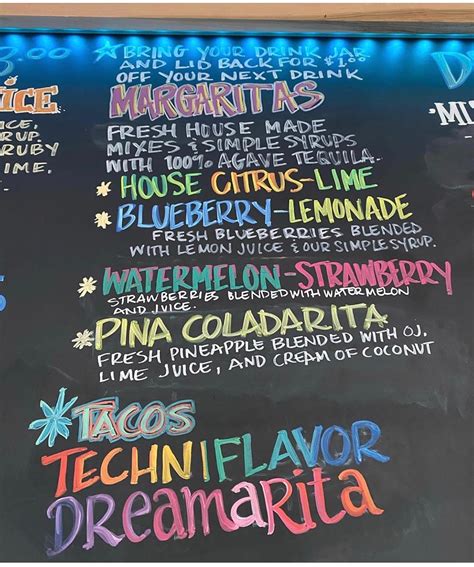 3.00
ICE
ICE.
RUP.
RUBY
IME.
BRING YOUR DRINK JAR
AND LID BACK FOR $1.00
OFF YOUR NEXT DRINK
MARGARITAS
FRESH HOUSE MADE
MIXES & SIMPLE SYRUPS
WITH 100% AGAVE TEQUILA.
HOUSE CITRUS-LIME
BLUEBERRY-LEMONADE
FRESH BLUEBERRIES BLENDED
WITH LEMON JUICE & OUR SIMPLE SYRUP.
WATERMELON-STRAWBERRY
STRAWBERRIES BLENDED WITH WATERMELON
AND JUICE.
PINA COLADARITA
FRESH PINEAPPLE BLENDED WITH OJ,
LIME JUICE, AND CREAM OF COCONUT
TACOS
TECHNIFLAVOR
DREAMARITA
D
MI